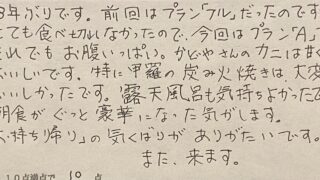 3年ぶりです。前回はプラン「フル」だったのです
ても食べ切れなかったので、今回はプラン「A」
れでもお腹いっぱい。かどやさんのカニはす
いしいです。特に甲羅の炭み火焼きは、大変
いしかったです。露天風呂も気持ちよかったで
朝食がぐっと豪華になった気がします。
お持ち帰り」の気くばりがありがたいです。
また、来ます。
10点満点で 10 点